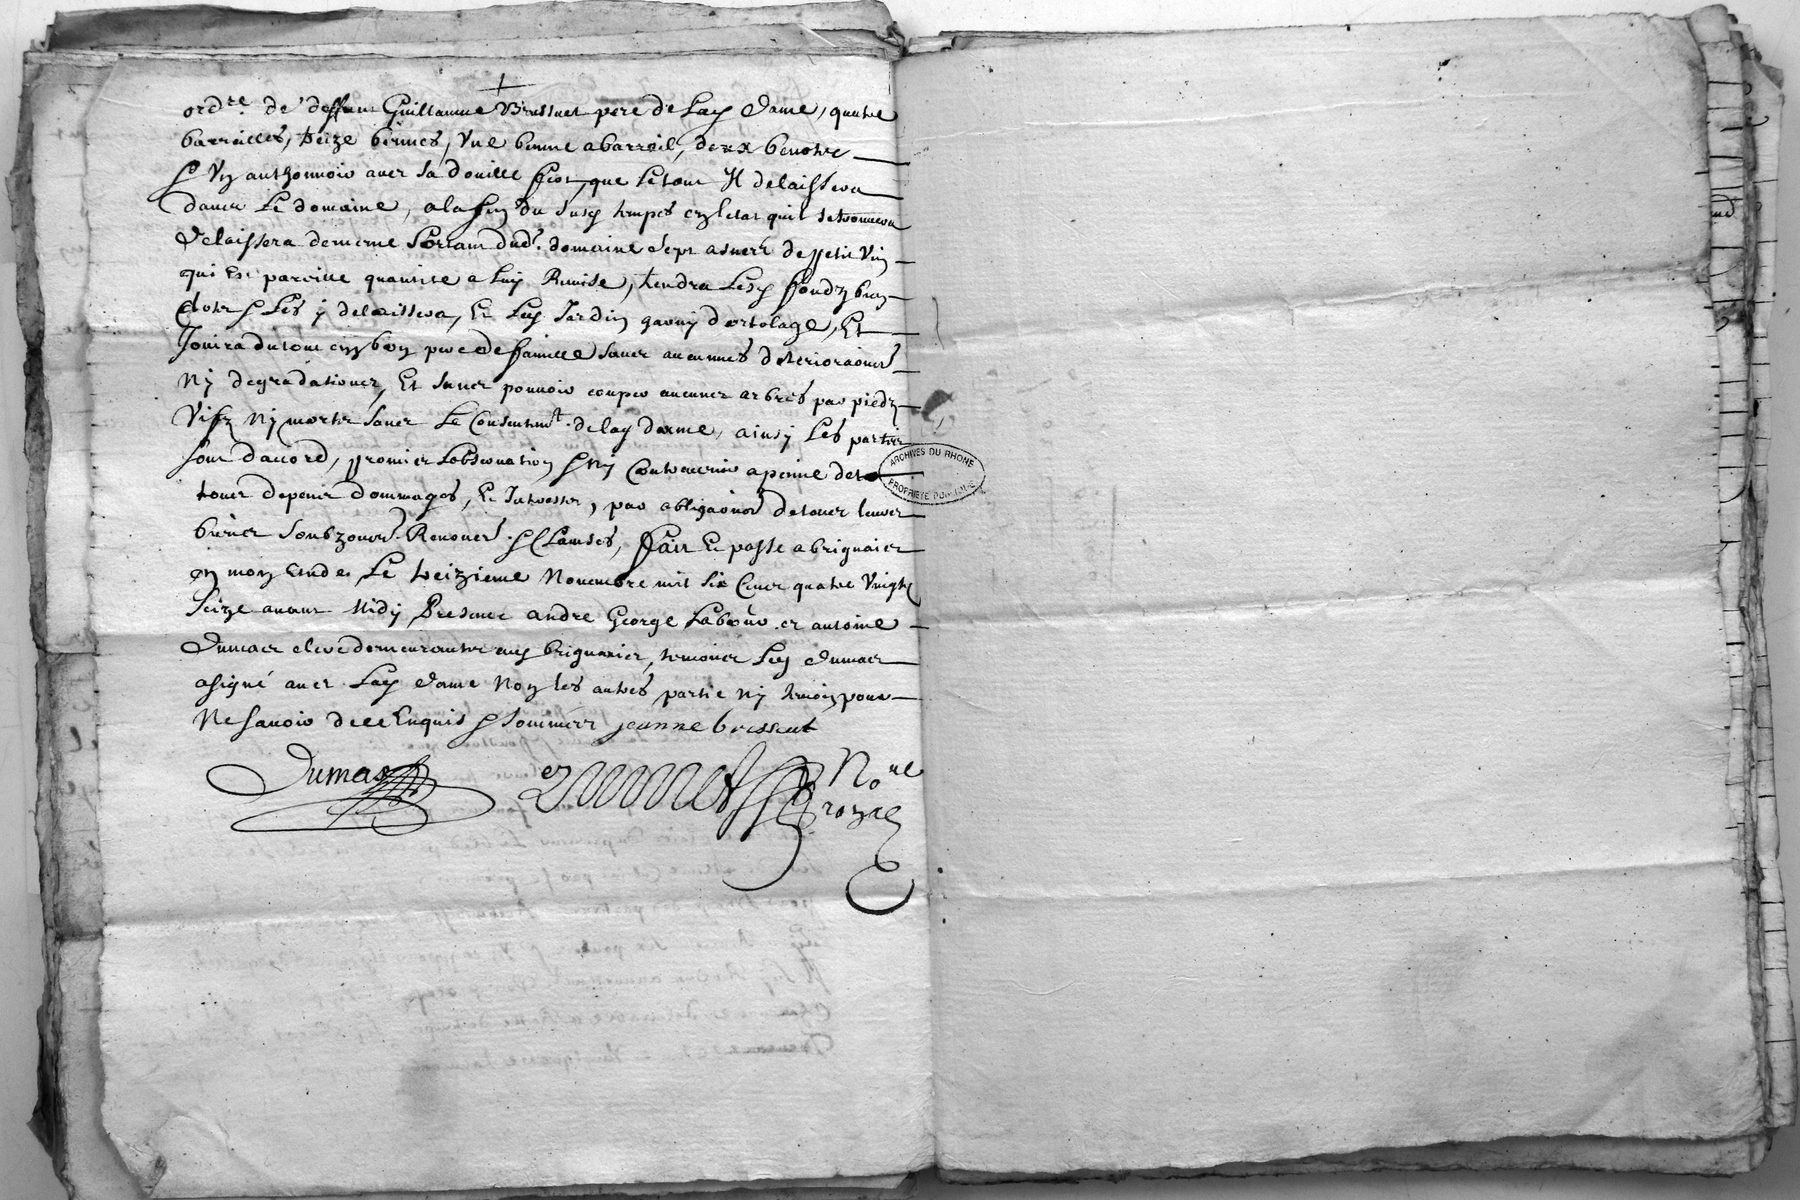 ordre. de deffunt Guillaume Brussuet pere de Lad Dame, quatre
barreilles, treize bennes, Une benne a barreil, deux benotre
Un anthonnoir avec Sa douille que le tout Il delaissera
dans Le domaine, a la fin du Susd temps en letat quil se trouvera
Delaissera de meme Sortant dud. domaine Sept asnees de petit Vin
qui Est pareille quantite a Luy Remise, tendra Lesd fondz bien
Clotz Les y delaissera, Et Led Jardin garny dortolage, Et
Jouira du tout en bon pere de famille Sans aucunnes deterioraons
Ny degradations, Et Sans pouvoir couper aucuns arbres par piedz
Vifz Ny mortz Sans Le Consentemt. de lad dame, ainsy Les parties
Sont daccord, promis Lobservation Ny Contrevenir a peine de to
tous depens dommages, Et Interestz, par obligaons de tous leurs
biens Soubzons. Renons. Clauses, fait Et passe a brignais
en mon Etude Le treizieme Novembre mil Six Cens quatre Vingtz
Seize avant Midy Presence andre George Labeur et antoine
Dumas clerc demeurantz aud brignais, temoins Led Dumas
a signé avec Lad Dame Non les autres partie Ny temoin pour
Ne Savoir de ce Enquis Sommés jeanne bressuet
Dumas
Nore
royal
ARCHIVES DU RHONE
PROPRIETE PUBLIQUE